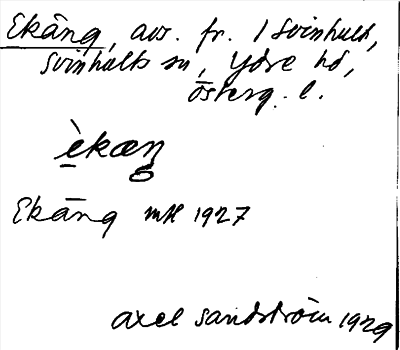 Ekäng, avs. fr. 1 Svinhult,
Svinhults sn, Ydre hd,
Österg. l.
èkæŋ
Ekäng mtl 1927
Axel Sandström 1929